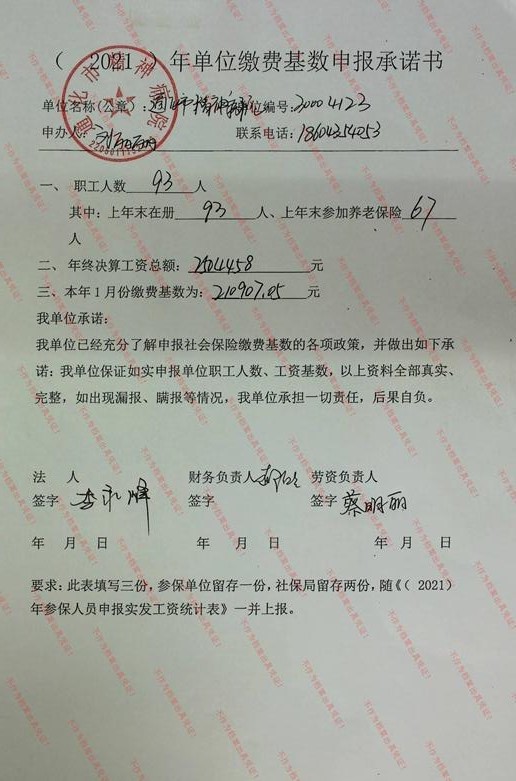 （ 2021 ）年单位缴费基数申报承诺书
单位名称(公章)：通化市精神病院 单位编号：20004123
申办人： 联系电话：18604354053
一、 职工人数 93 人
其中：上年末在册 93 人、上年末参加养老保险 67
人
二、年终决算工资总额：2504458 元
三、本年1月份缴费基数为：210907.05 元
我单位承诺：
我单位已经充分了解申报社会保险缴费基数的各项政策，并做出如下承
诺：我单位保证如实申报单位职工人数、工资基数，以上资料全部真实、
完整，如出现漏报、瞒报等情况，我单位承担一切责任，后果自负。
法 人 财务负责人 劳资负责人
签字 李永辉 签字 签字 蔡明丽
年 月 日 年 月 日 年 月 日
要求：此表填写三份，参保单位留存一份，社保局留存两份，随《（ 2021）
年参保人员申报实发工资统计表》一并上报。